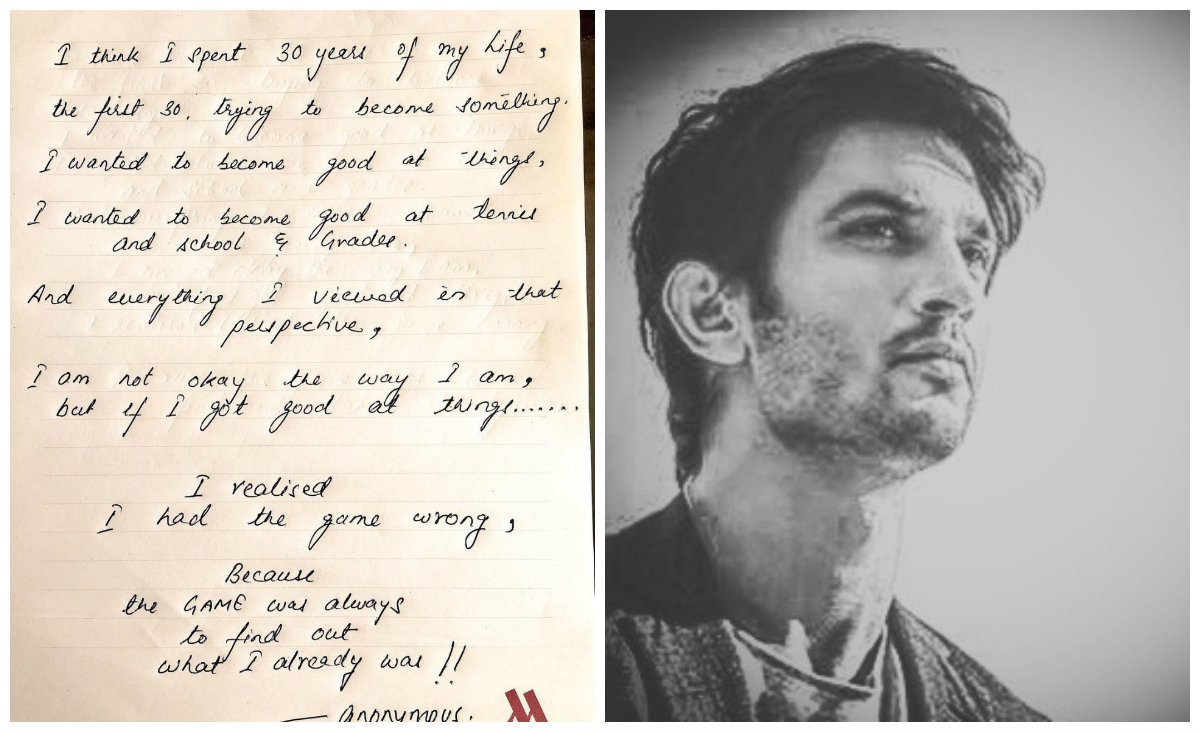 I think I spent 30 years of my life,
the first 30, trying to become something.
I wanted to become good at things,
I wanted to become good at tennis
and school & Grades.
And everything I viewed in that
perspective,
I am not okay the way I am,
but if I got good at things.......
I realised
I had the game wrong,
Because
the GAME was always
to find out
what I already was !!
— Anonymous.